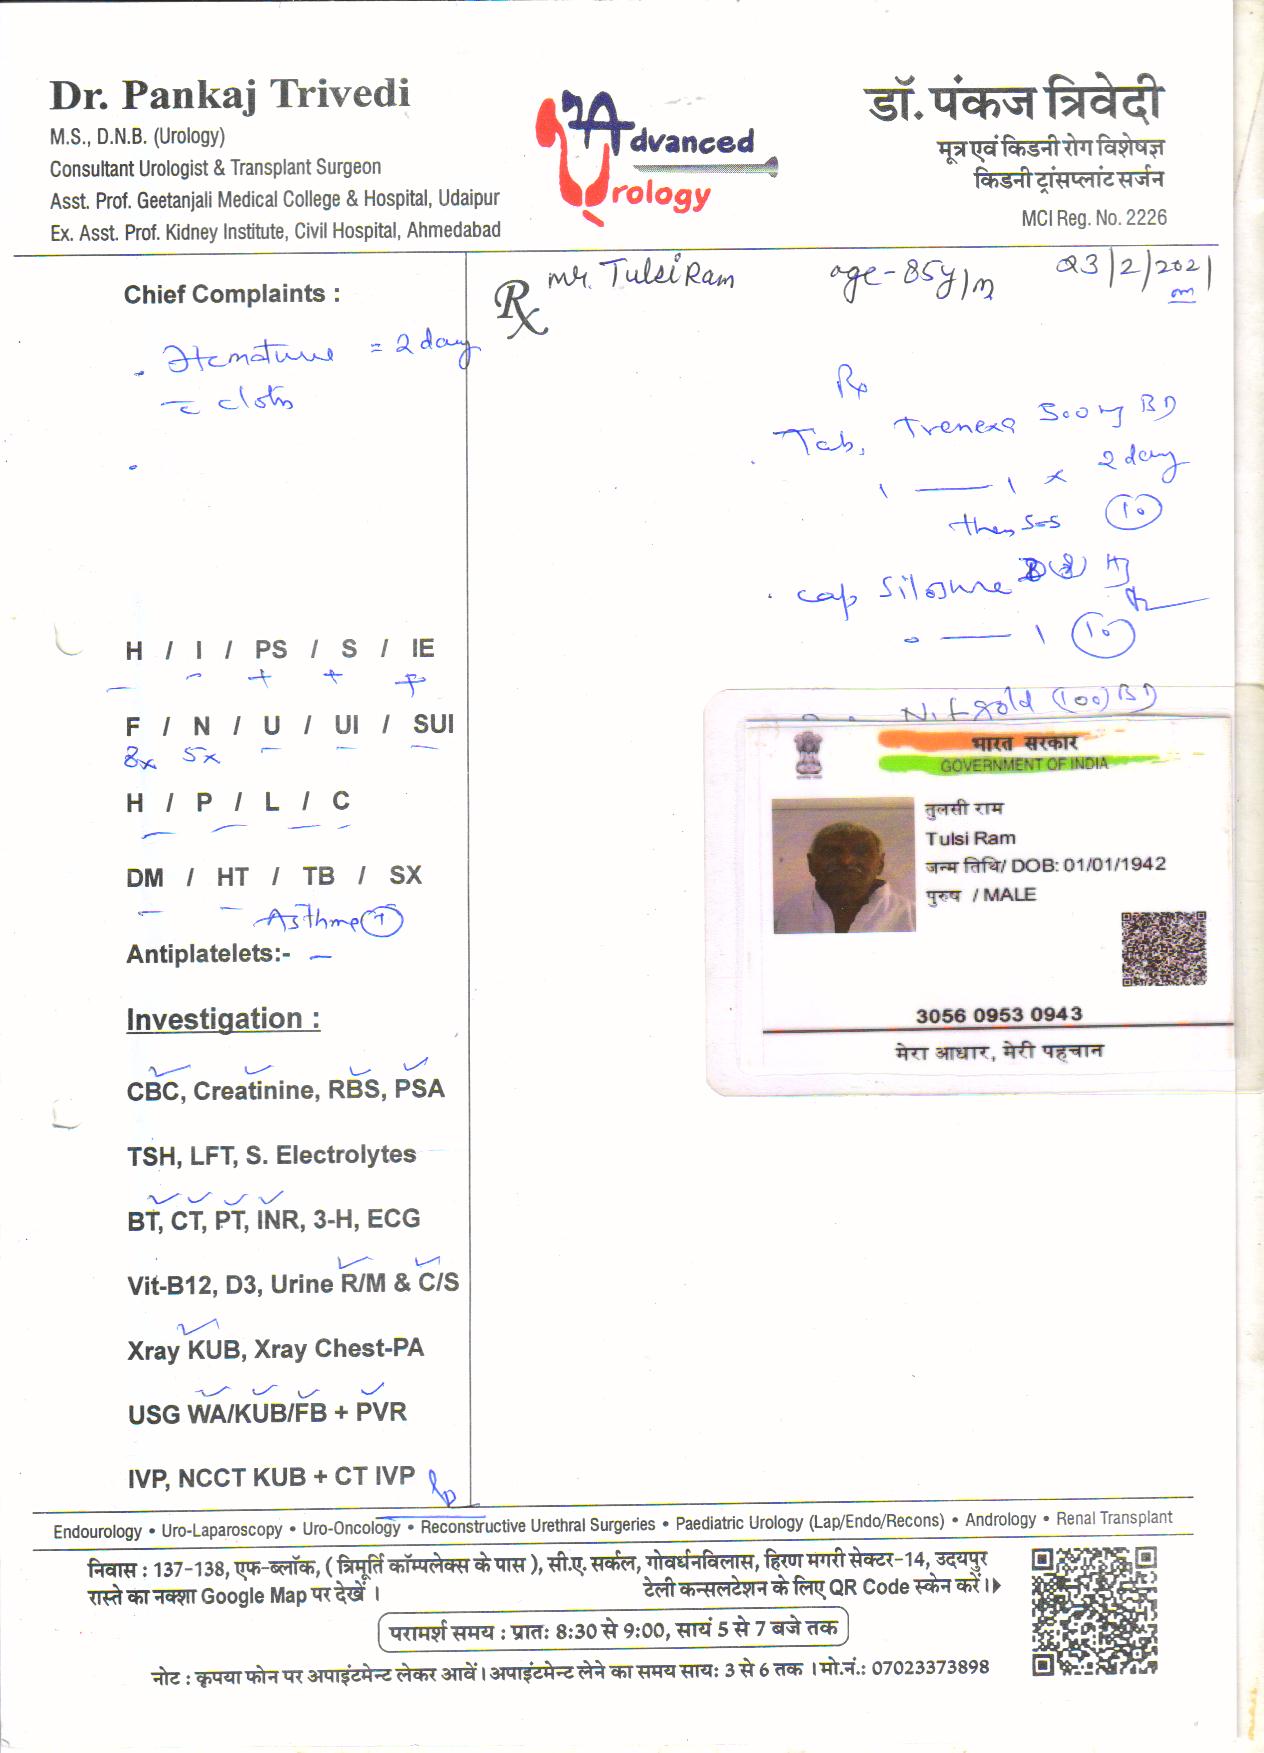 Dr. Pankaj Trivedi
M.S., D.N.B. (Urology)
Consultant Urologist & Transplant Surgeon
Asst. Prof. Geetanjali Medical College & Hospital, Udaipur
Ex. Asst. Prof. Kidney Institute, Civil Hospital, Ahmedabad
Advanced
Urology
डॉ. पंकज त्रिवेदी
मूत्र एवं किडनी रोग विशेषज्ञ
किडनी ट्रांसप्लांट सर्जन
MCI Reg. No. 2226
Rx Mr. Tulsi Ram age-85y/m 23/2/2021
Chief Complaints :
= 2 day
Rx
Tab. Trenexa 500mg BD
1 — 1 x 2 day
then S-S 10
cap
0 — 1 10
H / I / PS / S / IE
– – + + +
(100) BD
F / N / U / UI / SUI
8x 5x – – –
H / P / L / C
– – – –
DM / HT / TB / SX
– – Asthma +
Antiplatelets:- –
Investigation :
CBC, Creatinine, RBS, PSA
TSH, LFT, S. Electrolytes
BT, CT, PT, INR, 3-H, ECG
Vit-B12, D3, Urine R/M & C/S
Xray KUB, Xray Chest-PA
USG WA/KUB/FB + PVR
IVP, NCCT KUB + CT IVP
भारत सरकार
GOVERNMENT OF INDIA
तुलसी राम
Tulsi Ram
जन्म तिथि/ DOB: 01/01/1942
पुरुष / MALE
3056 0953 0943
मेरा आधार, मेरी पहचान
Endourology • Uro-Laparoscopy • Uro-Oncology • Reconstructive Urethral Surgeries • Paediatric Urology (Lap/Endo/Recons) • Andrology • Renal Transplant
निवास : 137-138, एफ-ब्लॉक, ( त्रिमूर्ति कॉम्पलेक्स के पास ), सी.ए. सर्कल, गोवर्धनविलास, हिरण मगरी सेक्टर-14, उदयपुर
रास्ते का नक्शा Google Map पर देखें । टेली कन्सलटेशन के लिए QR Code स्केन करें।
परामर्श समय : प्रातः 8:30 से 9:00, सायं 5 से 7 बजे तक
नोट : कृपया फोन पर अपाइंटमेन्ट लेकर आवें। अपाइंटमेन्ट लेने का समय सायः 3 से 6 तक । मो.नं.: 07023373898